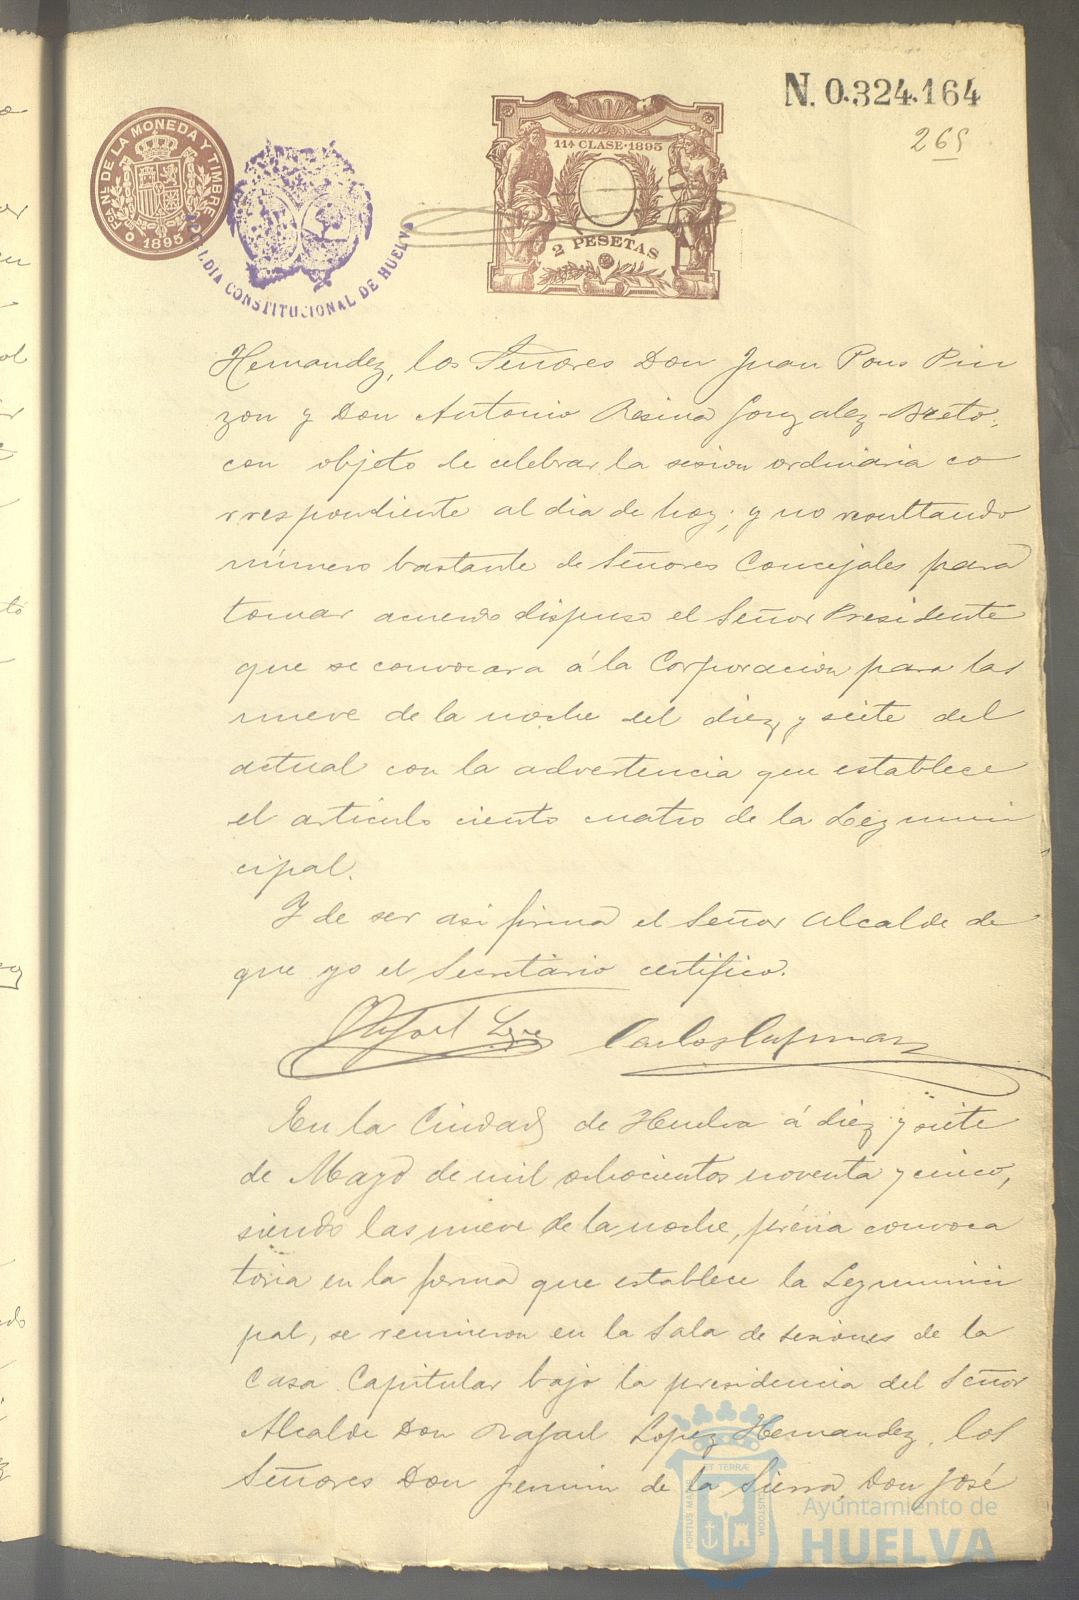 N. 0.324.164
265
FCA. NL. DE LA MONEDA Y TIMBRE
1895
11ª CLASE·1895
2 PESETAS
CONSTITUCIONAL DE HUELVA
Hernandez, los Señores Don Juan Pons Pin
zon y Don Antonio Resina Gonzalez-Breto,
con objeto de celebrar la sesion ordinaria co
rrespondiente al dia de hoy; y no resultando
número bastante de Señores Concejales para
tomar acuerdo dispuso el Señor Presidente
que se convocara á la Corporacion para las
nueve de la noche del diez y siete del
actual con la advertencia que establece
el articulo ciento cuatro de la Ley muni
cipal.
Y de ser asi firma el Señor Alcalde de
que yo el Secretario certifico.
Rafael Lopez
Carlos
En la Ciudad de Huelva á diez y siete
de Mayo de mil ochocientos noventa y cinco,
siendo las nueve de la noche, prévia convoca
toria en la forma que establece la Ley munici
pal, se reunieron en la Sala de sesiones de la
Casa Capitular bajo la presidencia del Señor
Alcalde Don Rafael Lopez Hernandez, los
Señores Don Fermin de la Sierra, Don José
PORTUS MARIS ET TERRÆ CUSTODIA
Ayuntamiento de
HUELVA